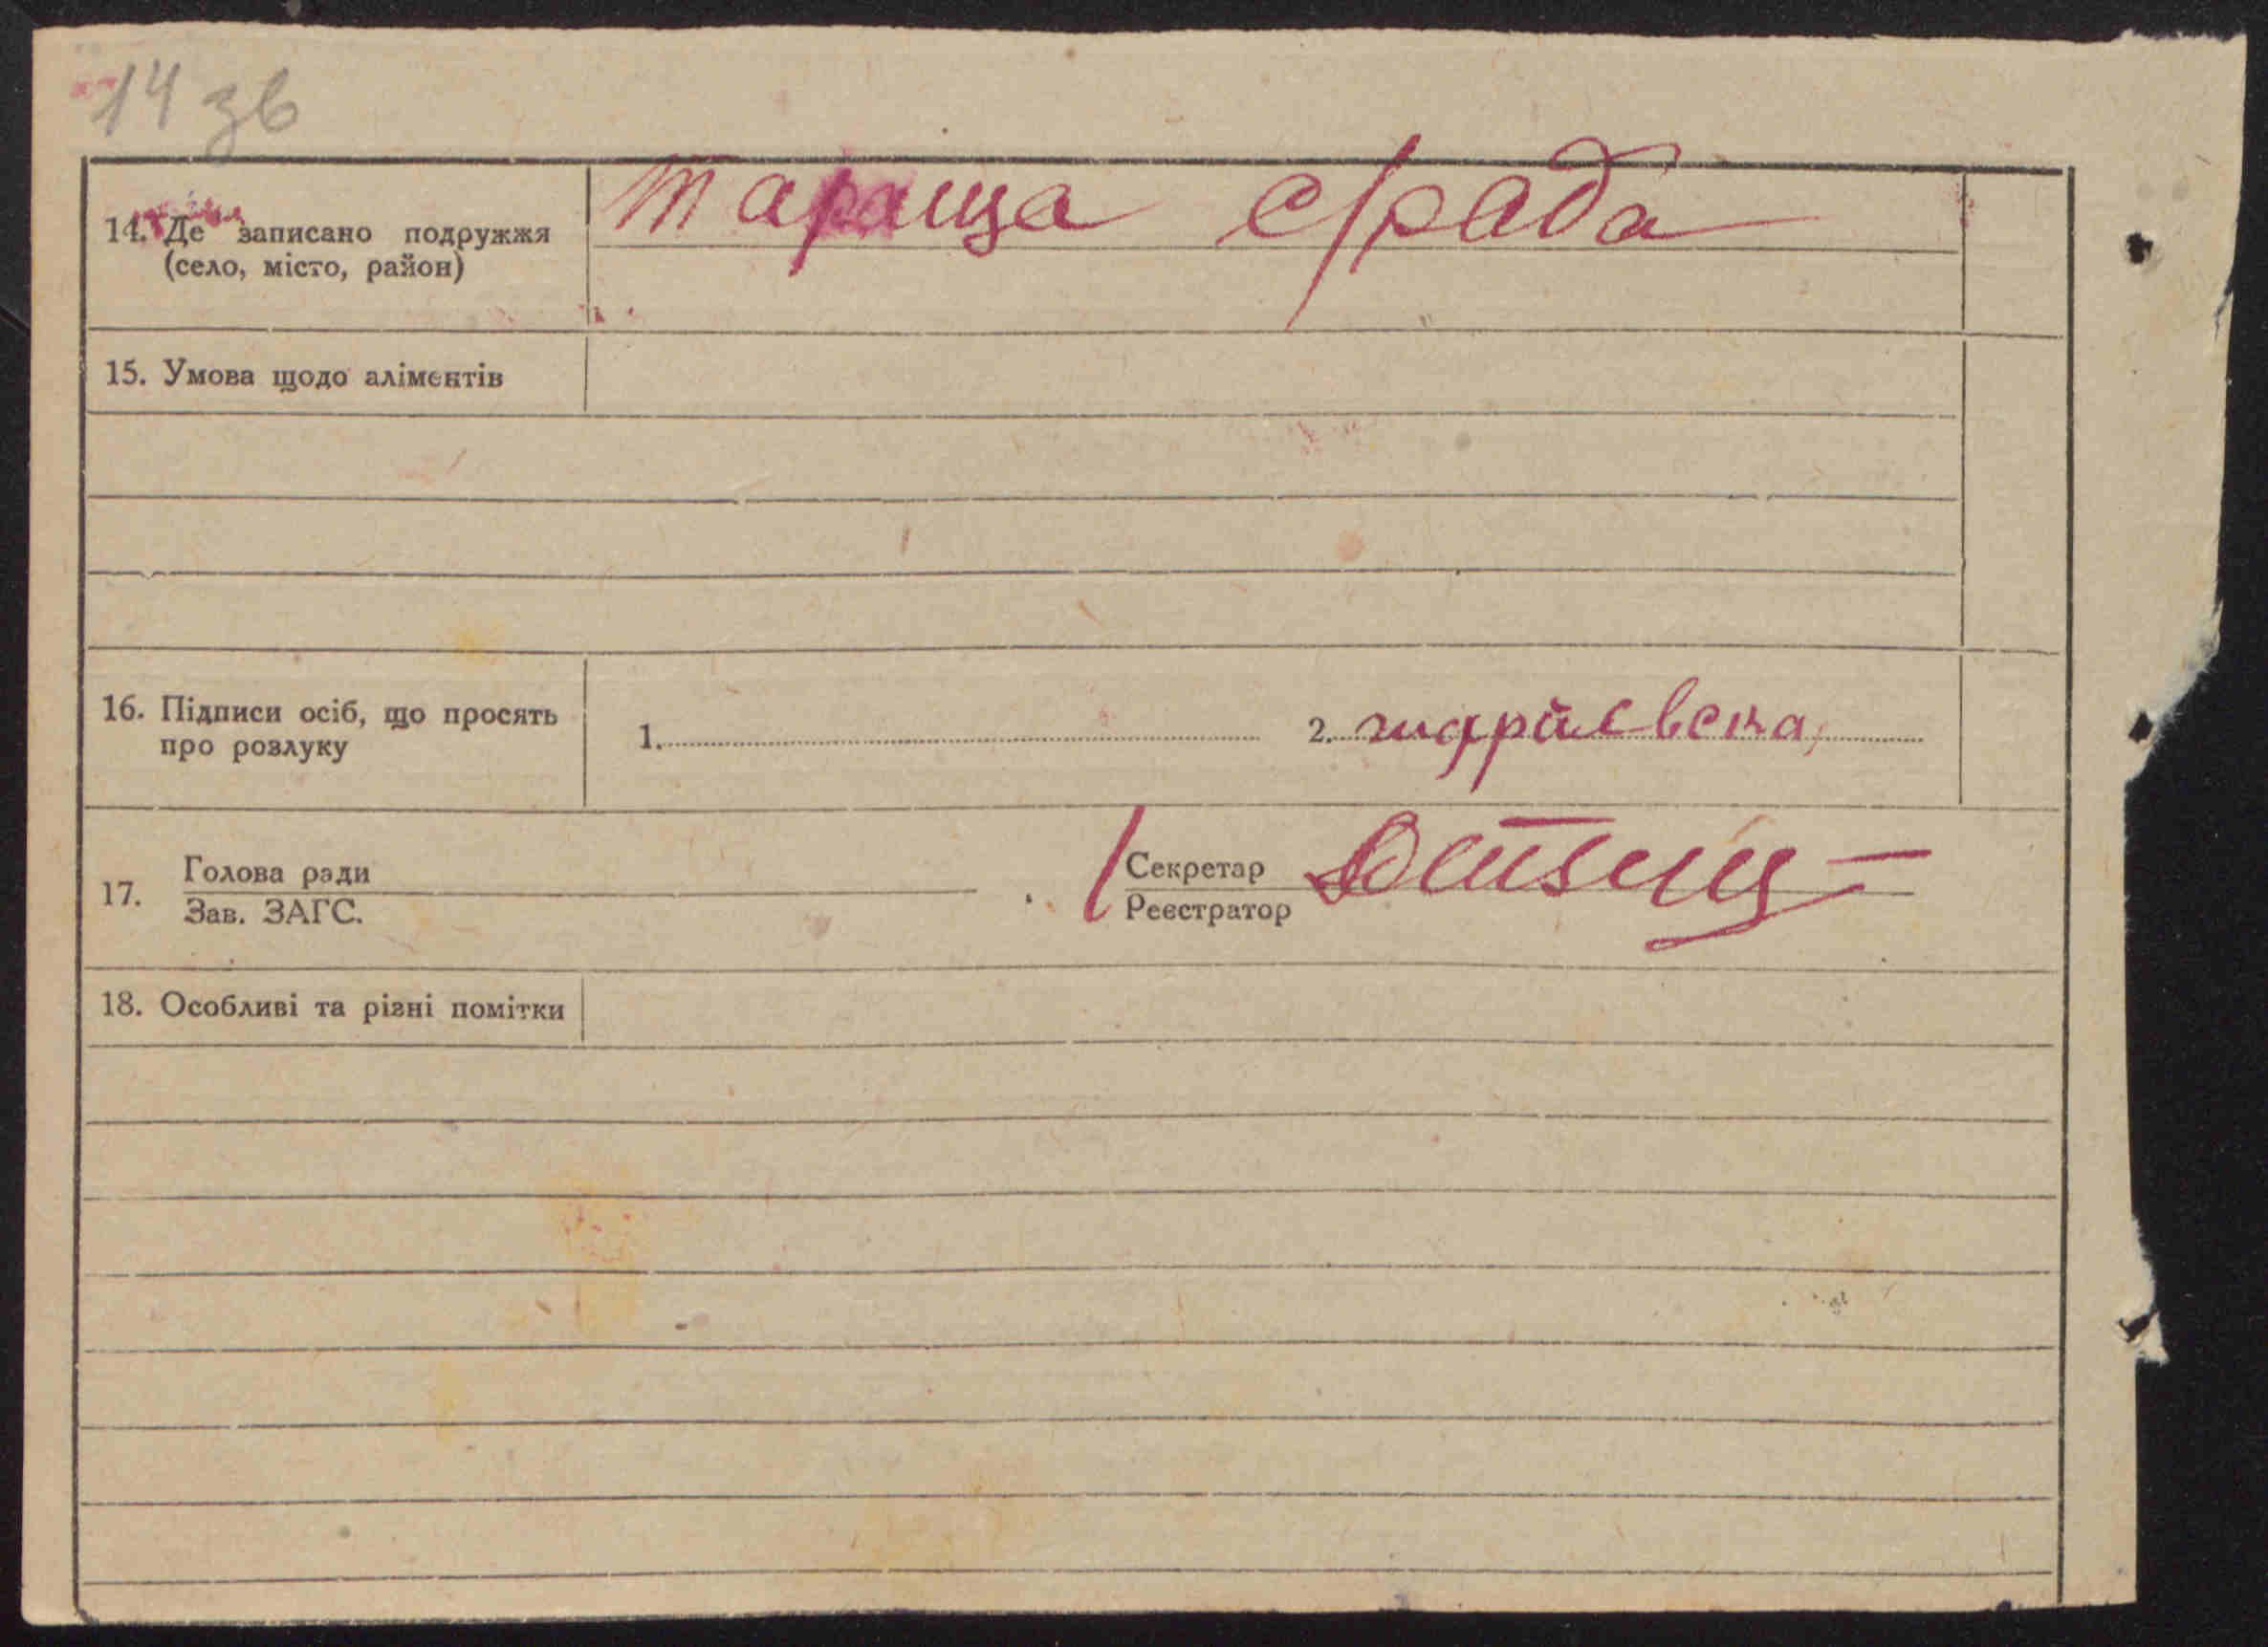 14 зв
Тараща с/рада
14. Де записано подружжя
(село, місто, район)
15. Умова щодо аліментів
16. Підписи осіб, що просять
про розлуку
1.
2.
17. Голова ради
Зав. ЗАГС.
Секретар
Реєстратор
18. Особливі та різні помітки